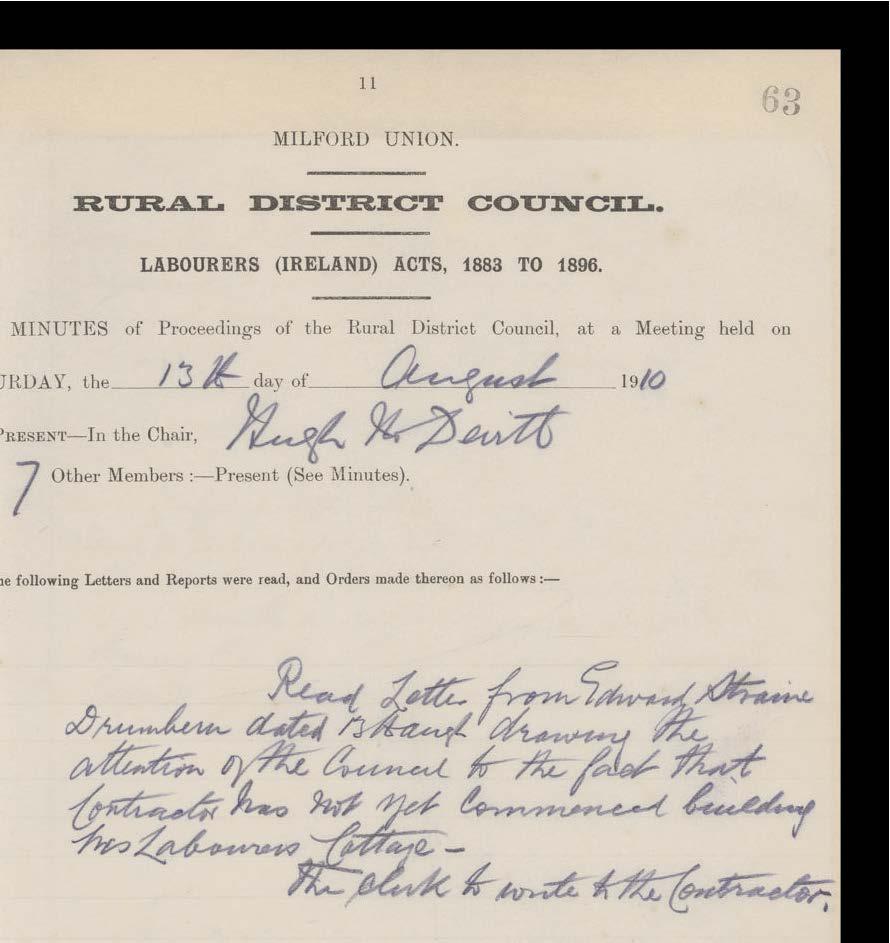 11
63
MILFORD UNION.
RURAL DISTRICT COUNCIL.
LABOURERS (IRELAND) ACTS, 1883 TO 1896.
MINUTES of Proceedings of the Rural District Council, at a Meeting held on
URDAY, the 13th day of August 1910
PRESENT—In the Chair, Hugh McDevitt
7 Other Members :—Present (See Minutes).
he following Letters and Reports were read, and Orders made thereon as follows :—
Read Letter from Edward Straine
Drumbern dated 13th augt drawing the
attention of the Council to the fact that
Contractor has not yet commenced building
his Labourers Cottage –
The clerk to write to the Contractor.